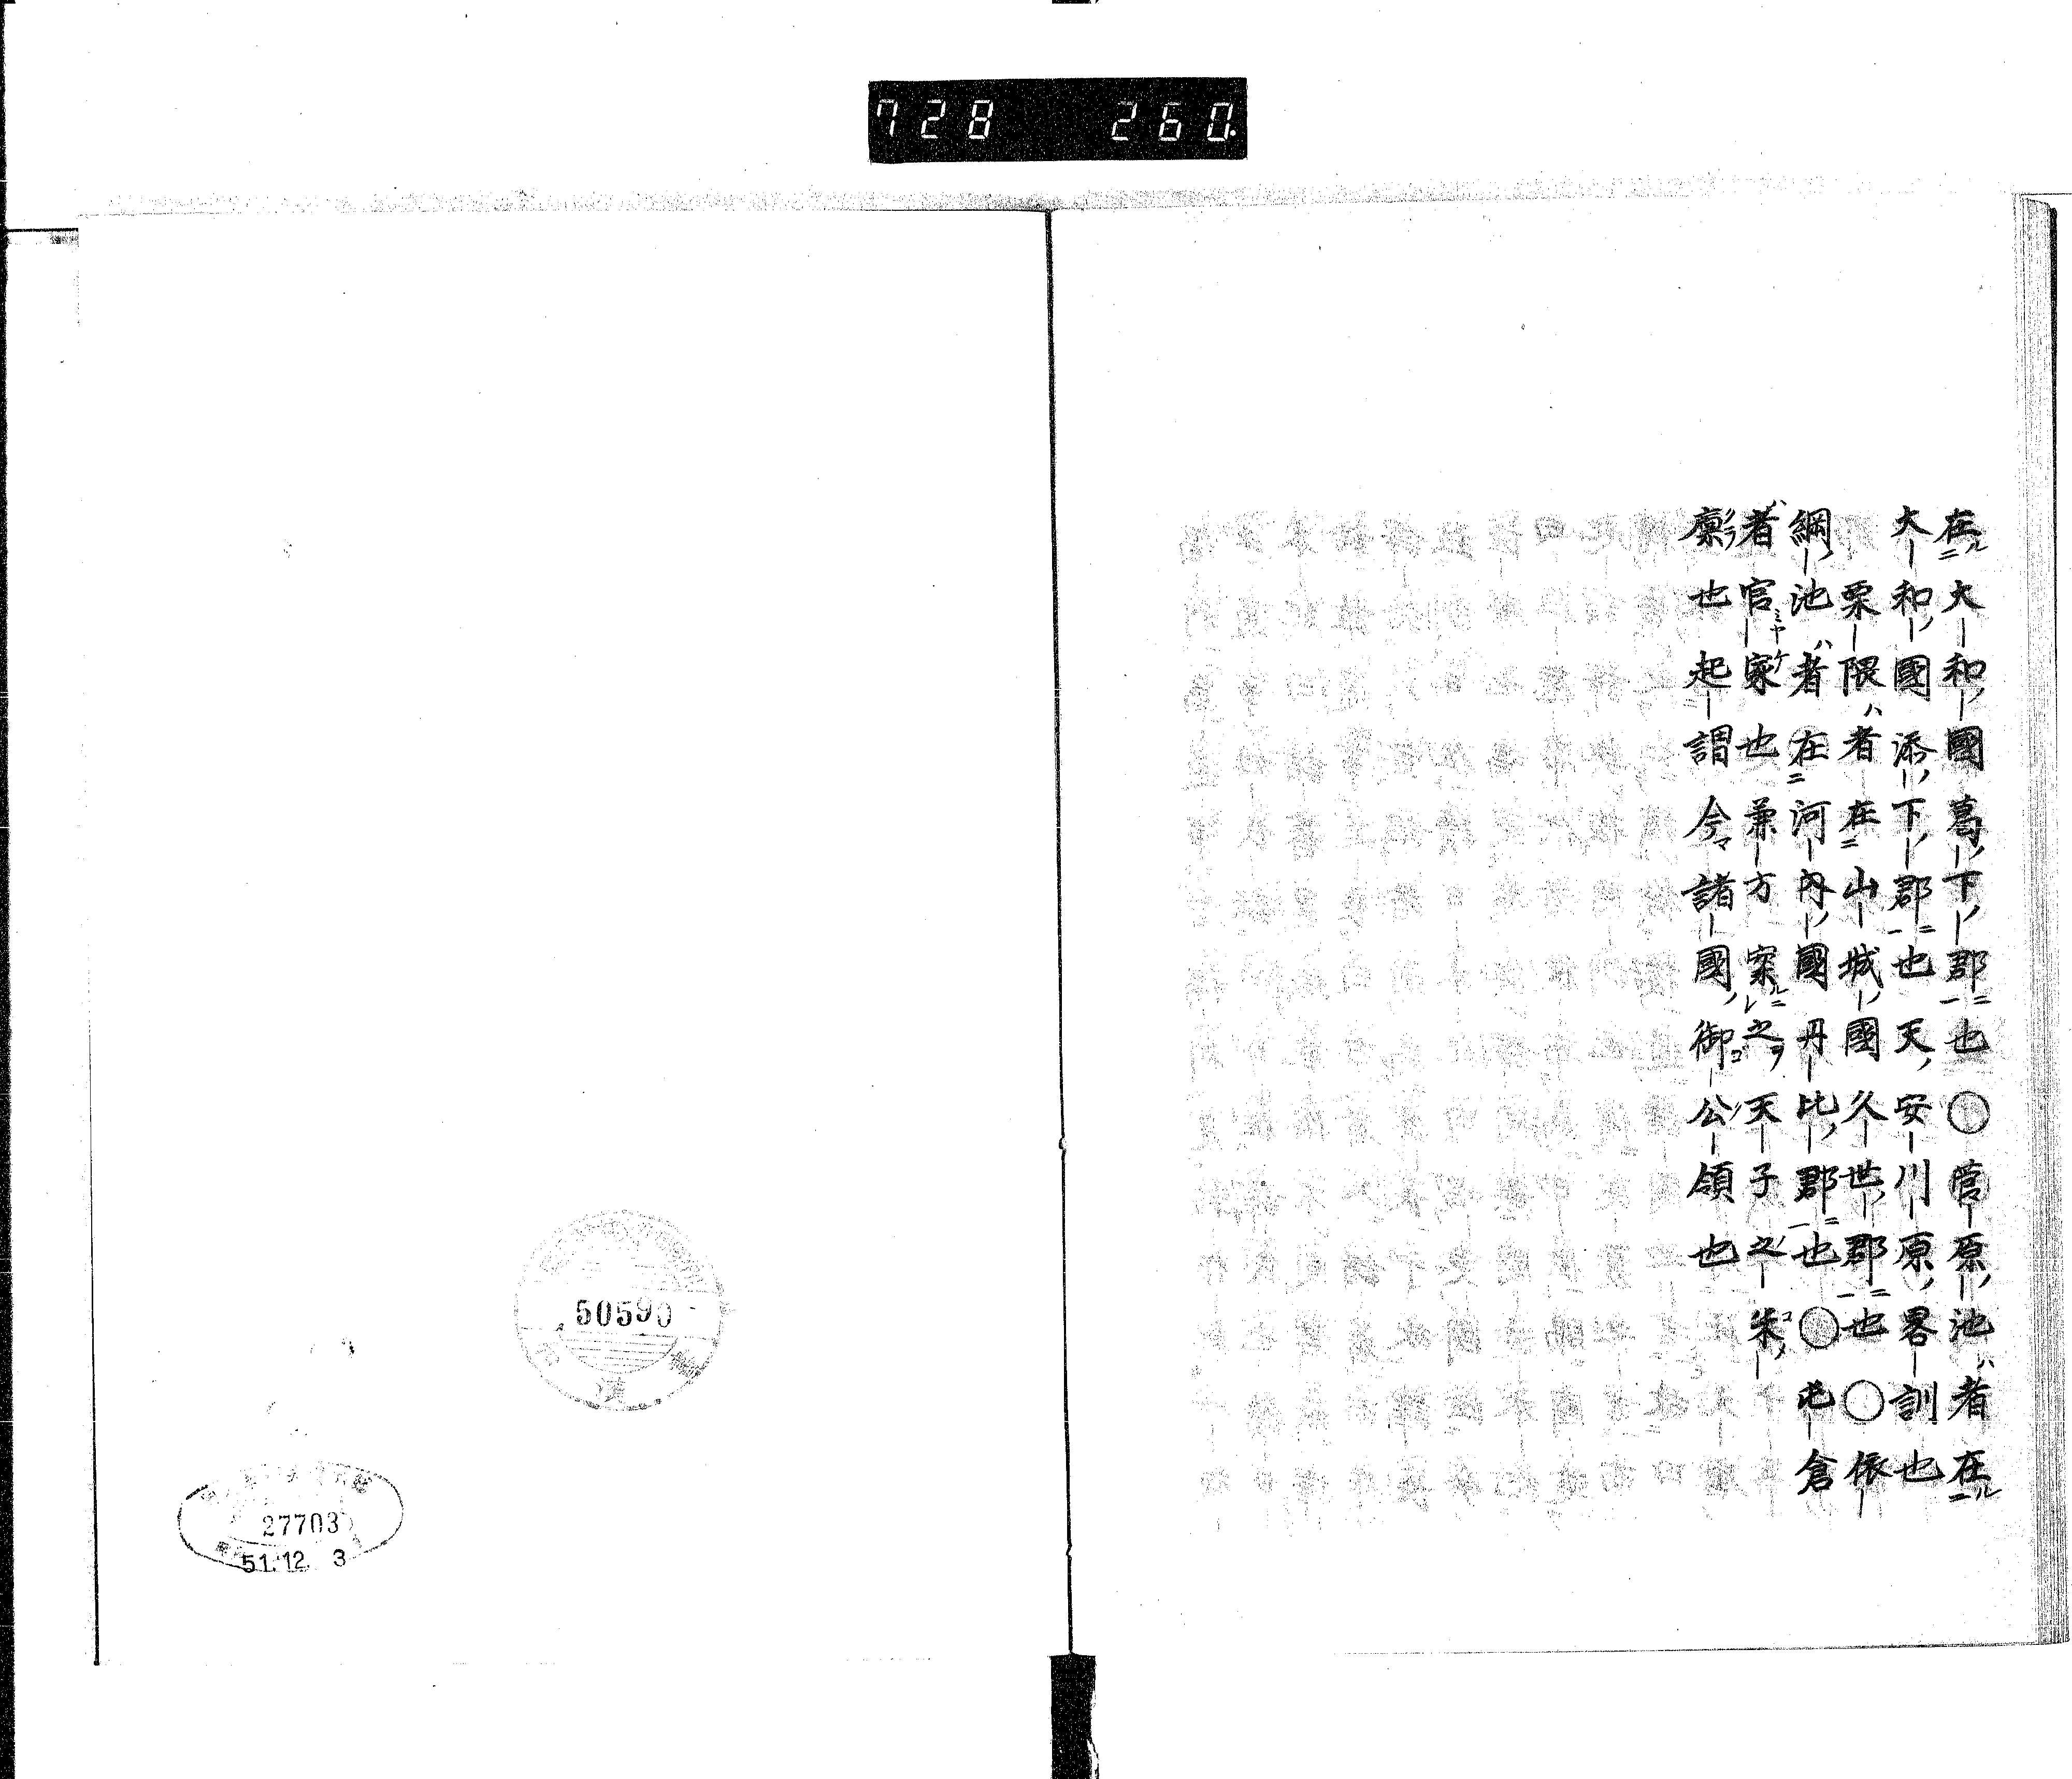 728 260
在大和國葛下郡也○菅原池者在
大和國添下郡也天安川原畧訓也
栗隈者在山城國久世郡也○依
綱池者在河內國丹比郡也○屯倉
者官家也兼方案之天子之朱
廪也起謂今諸國御公領也
50590
27703
51.12.3